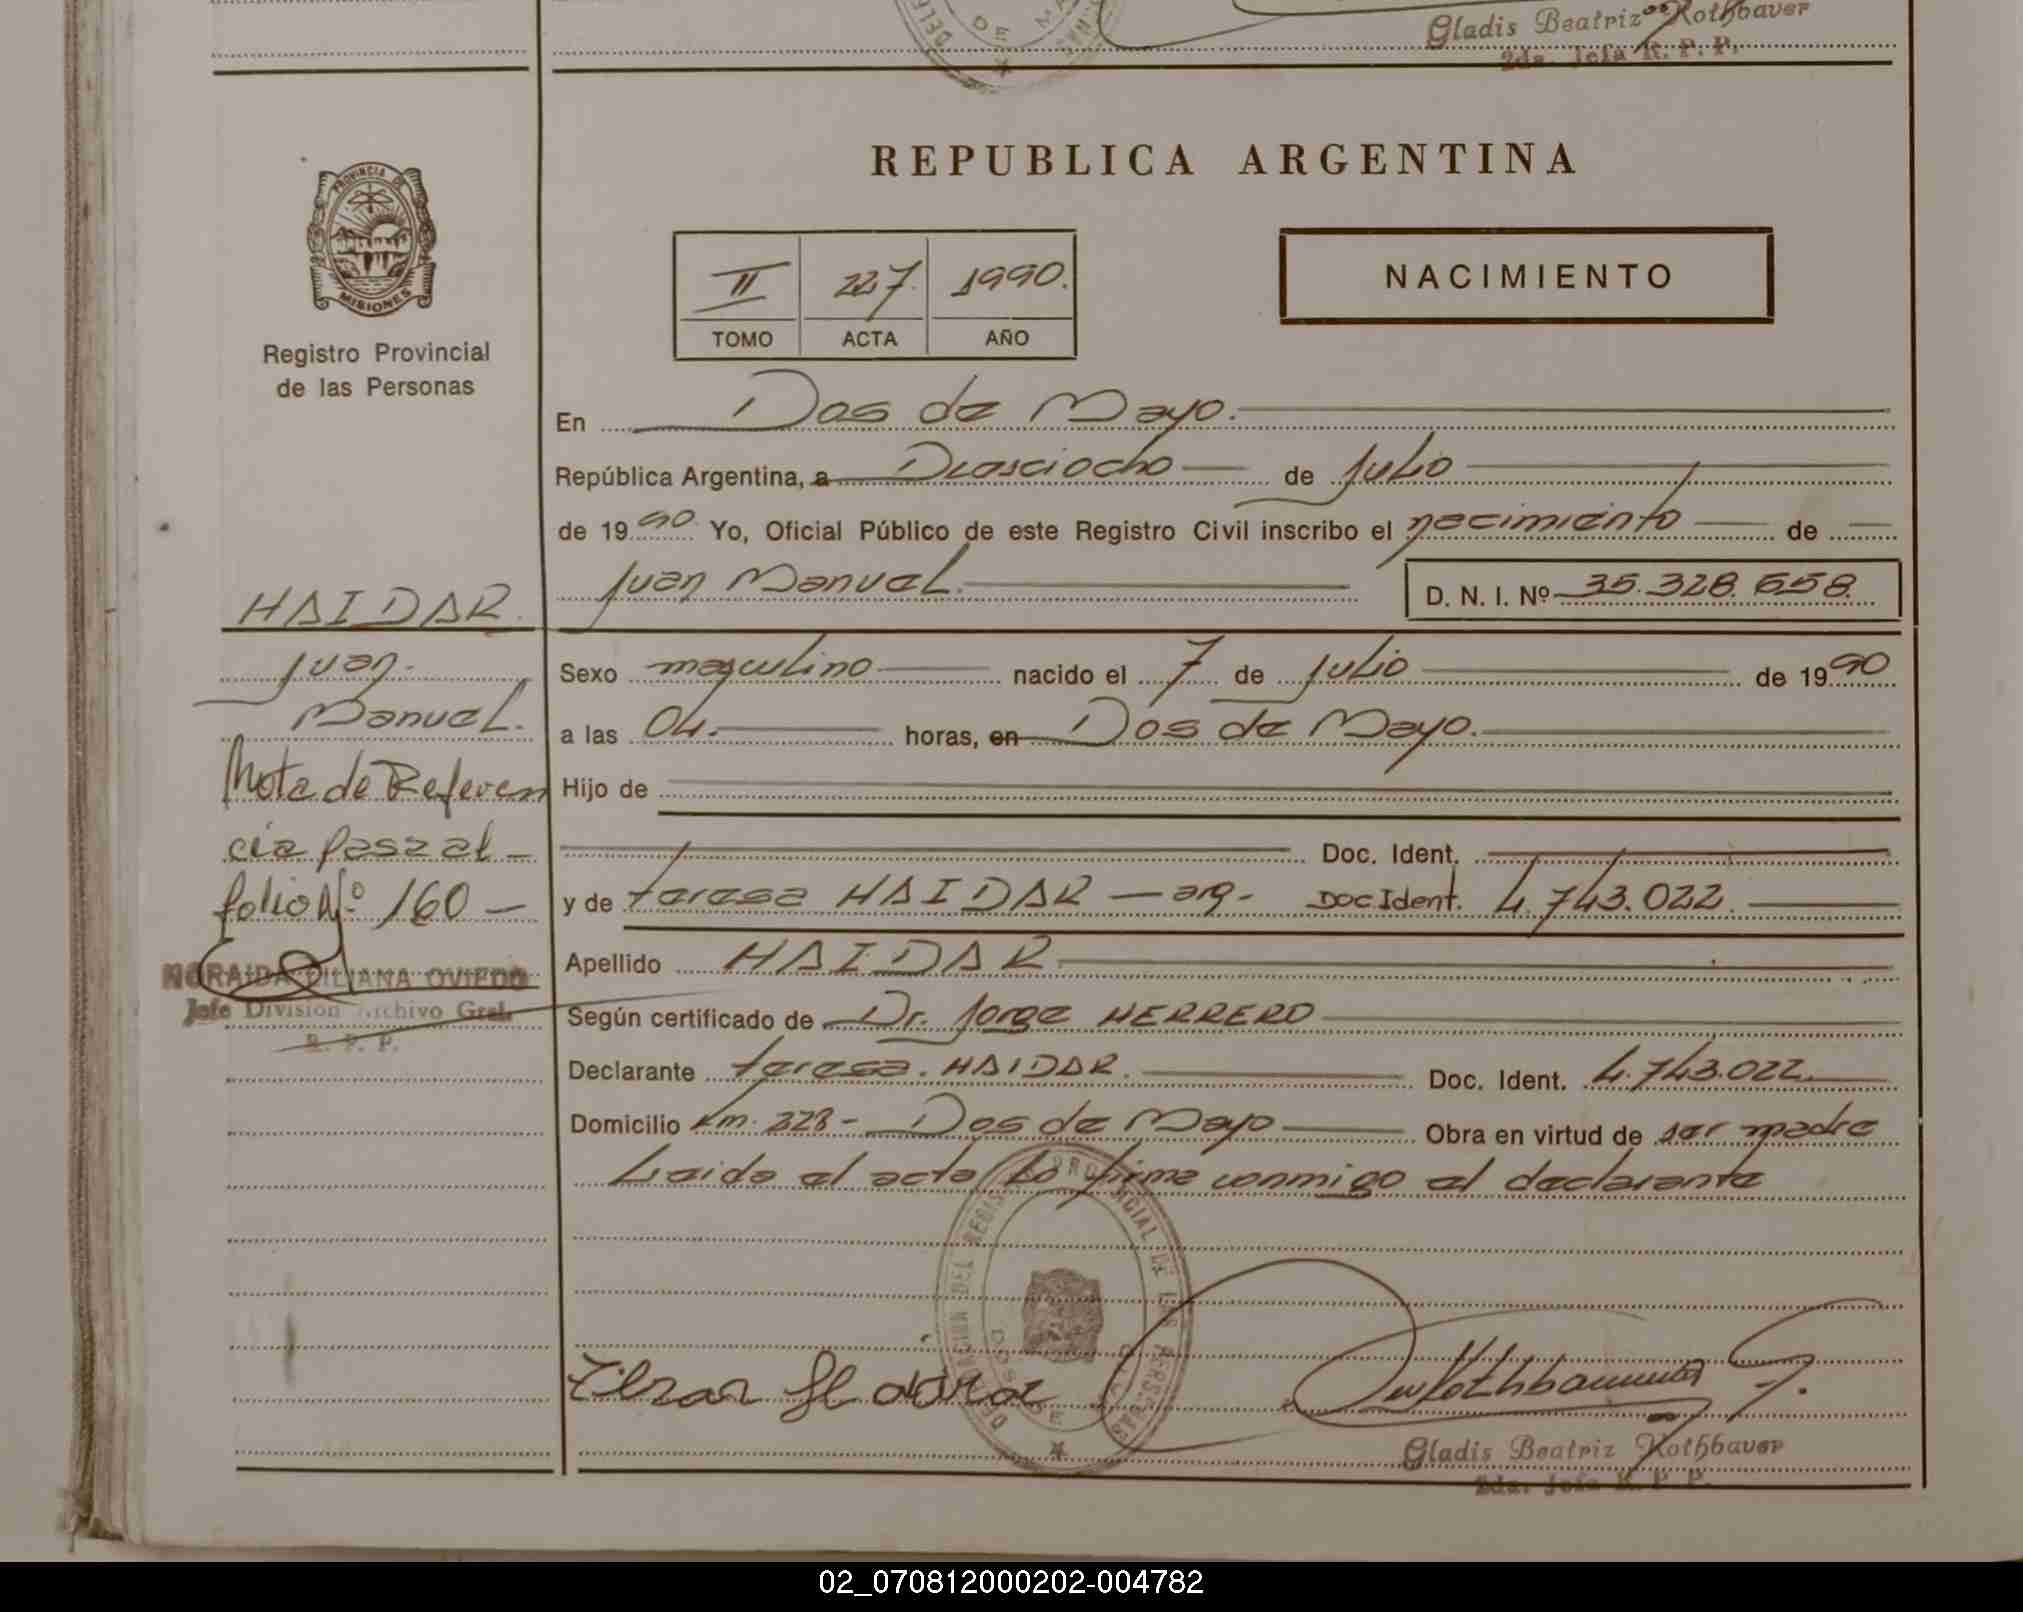 Gladis Beatriz Rothbauer
2da. Jefa R. P. P.
REPUBLICA ARGENTINA
PROVINCIA DE
MISIONES
II 227 1990.
TOMO ACTA AÑO
NACIMIENTO
Registro Provincial
de las Personas
En Dos de Mayo.
República Argentina, a Dieciocho de Julio
de 1990 Yo, Oficial Público de este Registro Civil inscribo el nacimiento de
Juan Manuel. D. N. I. Nº 35.328.658.
HAIDAR
Juan
Manuel.
Nota de Referen
cia pasa al
folio Nº 160
NORAIDA LILIANA OVIEDO
Jefe División Archivo Gral.
R. P. P.
Sexo masculino nacido el 7 de Julio de 1990
a las 04. horas, en Dos de Mayo.
Hijo de
Doc. Ident.
y de teresa HAIDAR — arg- Doc Ident. 4.743.022.
Apellido HAIDAR
Según certificado de Dr. Jorge HERRERO
Declarante teresa. HAIDAR. Doc. Ident. 4.743.022.
Domicilio Km. 228 - Dos de Mayo Obra en virtud de ser madre
Leida el acta lo firma conmigo el declarante
DELEGACION DEL REGISTRO PROVINCIAL DE LAS PERSONAS
DOS DE MAYO
Gladis Beatriz Rothbauer
2da. Jefa R. P. P.
02_070812000202-004782